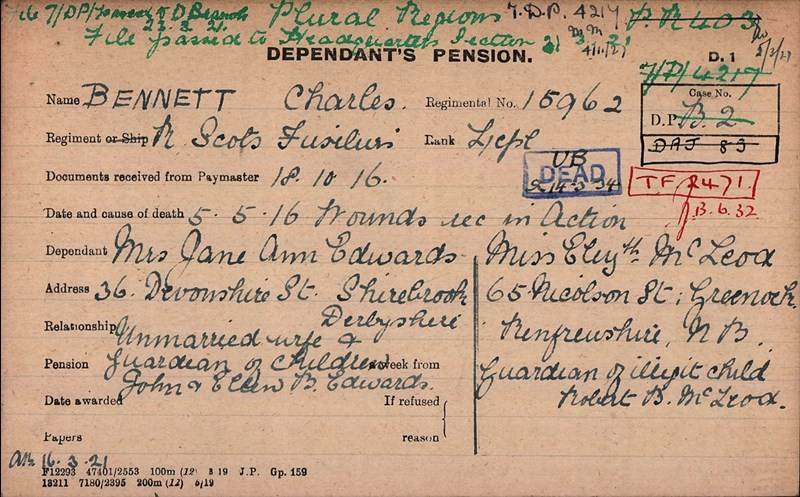 File 7/DP/ passed to D Branch
22. 8. 21.
Plural Regions
7. D. P. 4217
P. R 403
File passed to Headquarters Section 2/ 3. 21
4/11/21
5/3/21
DEPENDANT'S PENSION.
D. 1
7/P/4217
Case No.
Name BENNETT Charles. Regimental No. 15962
D.P. B. 2
Regiment or Ship R. Scots Fusiliers Rank L/cpl
DAJ 83
UB
DEAD
14.3.34
Documents received from Paymaster 18. 10 16.
T.F. R471.
13.6.32
Date and cause of death 5. 5. 16 Wounds rec in Action
Dependant Mrs Jane Ann Edwards Miss Elizth. McLeod
Address 36. Devonshire St. Shirebrook 65 Nicolson St; Greenock.
Derbyshire Renfrewshire, N B.
Relationship Unmarried wife &
Pension Guardian of Children a week from Guardian of illegit child
John & Ellen B. Edwards. Robert B. McLeod.
Date awarded If refused
Papers reason
16. 3. 21
F12293 47401/2553 100m (12) 3 19 J.P. Gp. 159
13211 7180/2395 200m (12) 6/19